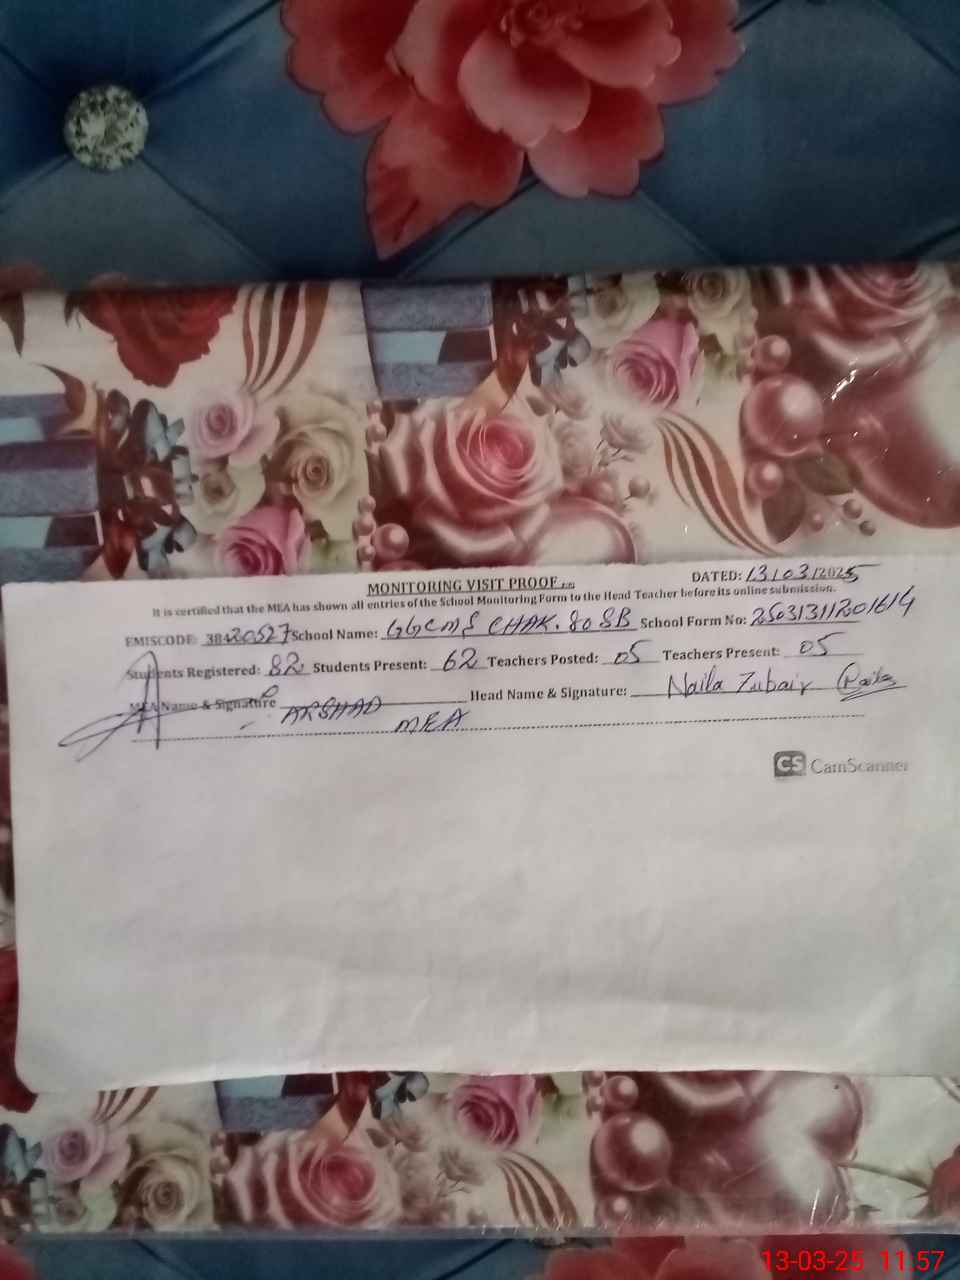 MONITORING VISIT PROOF
DATED: 13/03/2025
It is certified that the MEA has shown all entries of the School Monitoring Form to the Head Teacher before its online submission.
EMISCODE: 38420527 School Name: GGCMS CHAK. 80 SB School Form No: 250313112001614
Students Registered: 82 Students Present: 62 Teachers Posted: 05 Teachers Present: 05
MEA Name & Signature ARSHAD Head Name & Signature: Naila Zubair Naila
MEA
CS CamScanner
13-03-25 11.57